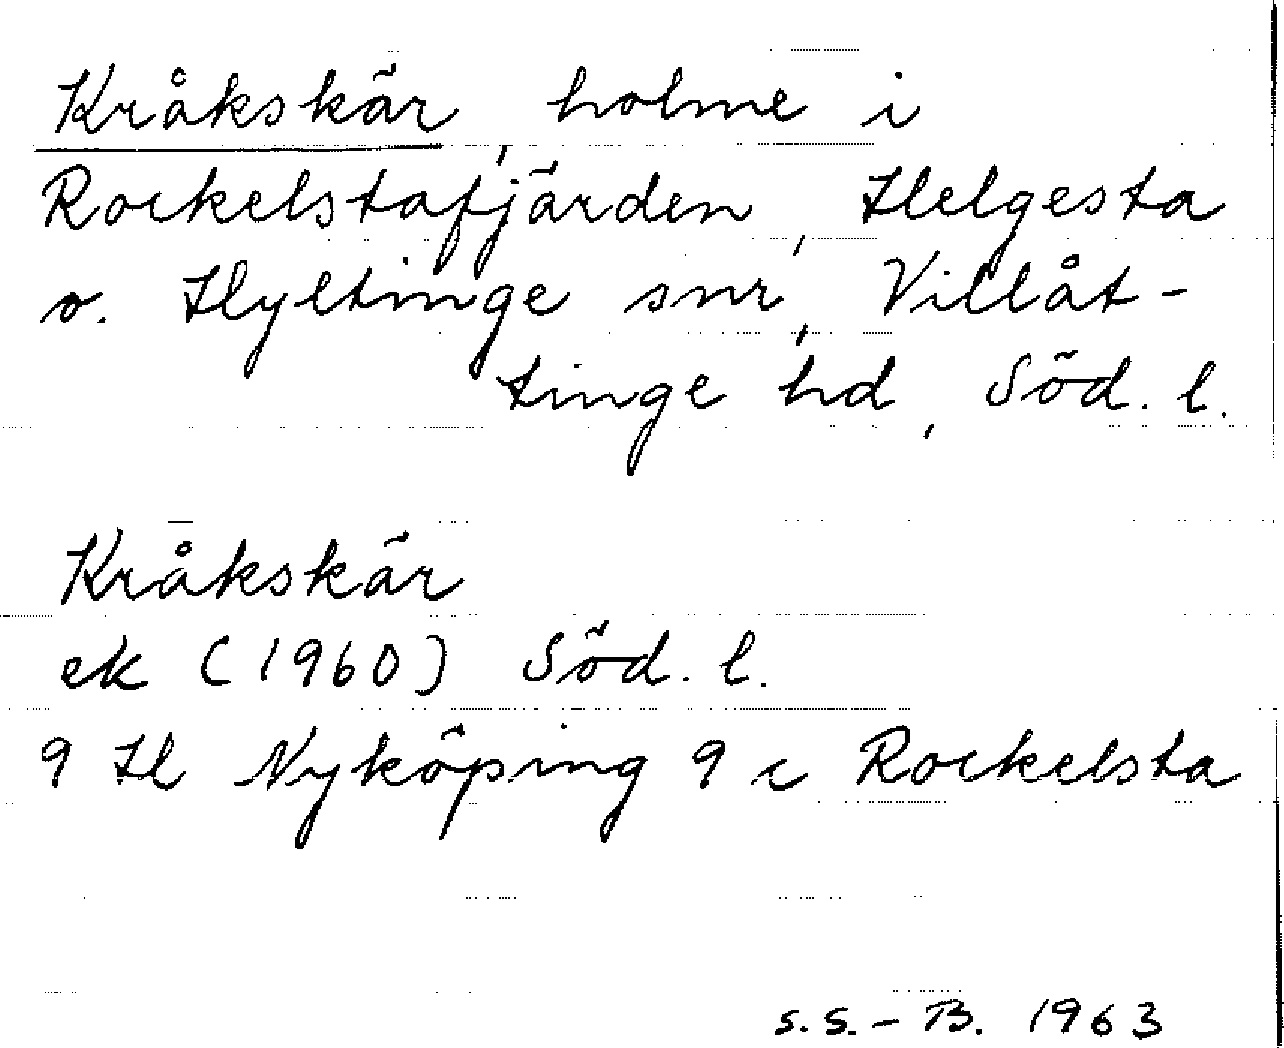 Kråkskär, holme i
Rockelstafjärden, Helgesta
o. Hyltinge snr, Villåt-
tinge hd, Söd. l.
Kråkskär
ek (1960) Söd. l.
9 H Nyköping 9 c Rockelsta
S.S.-B. 1963